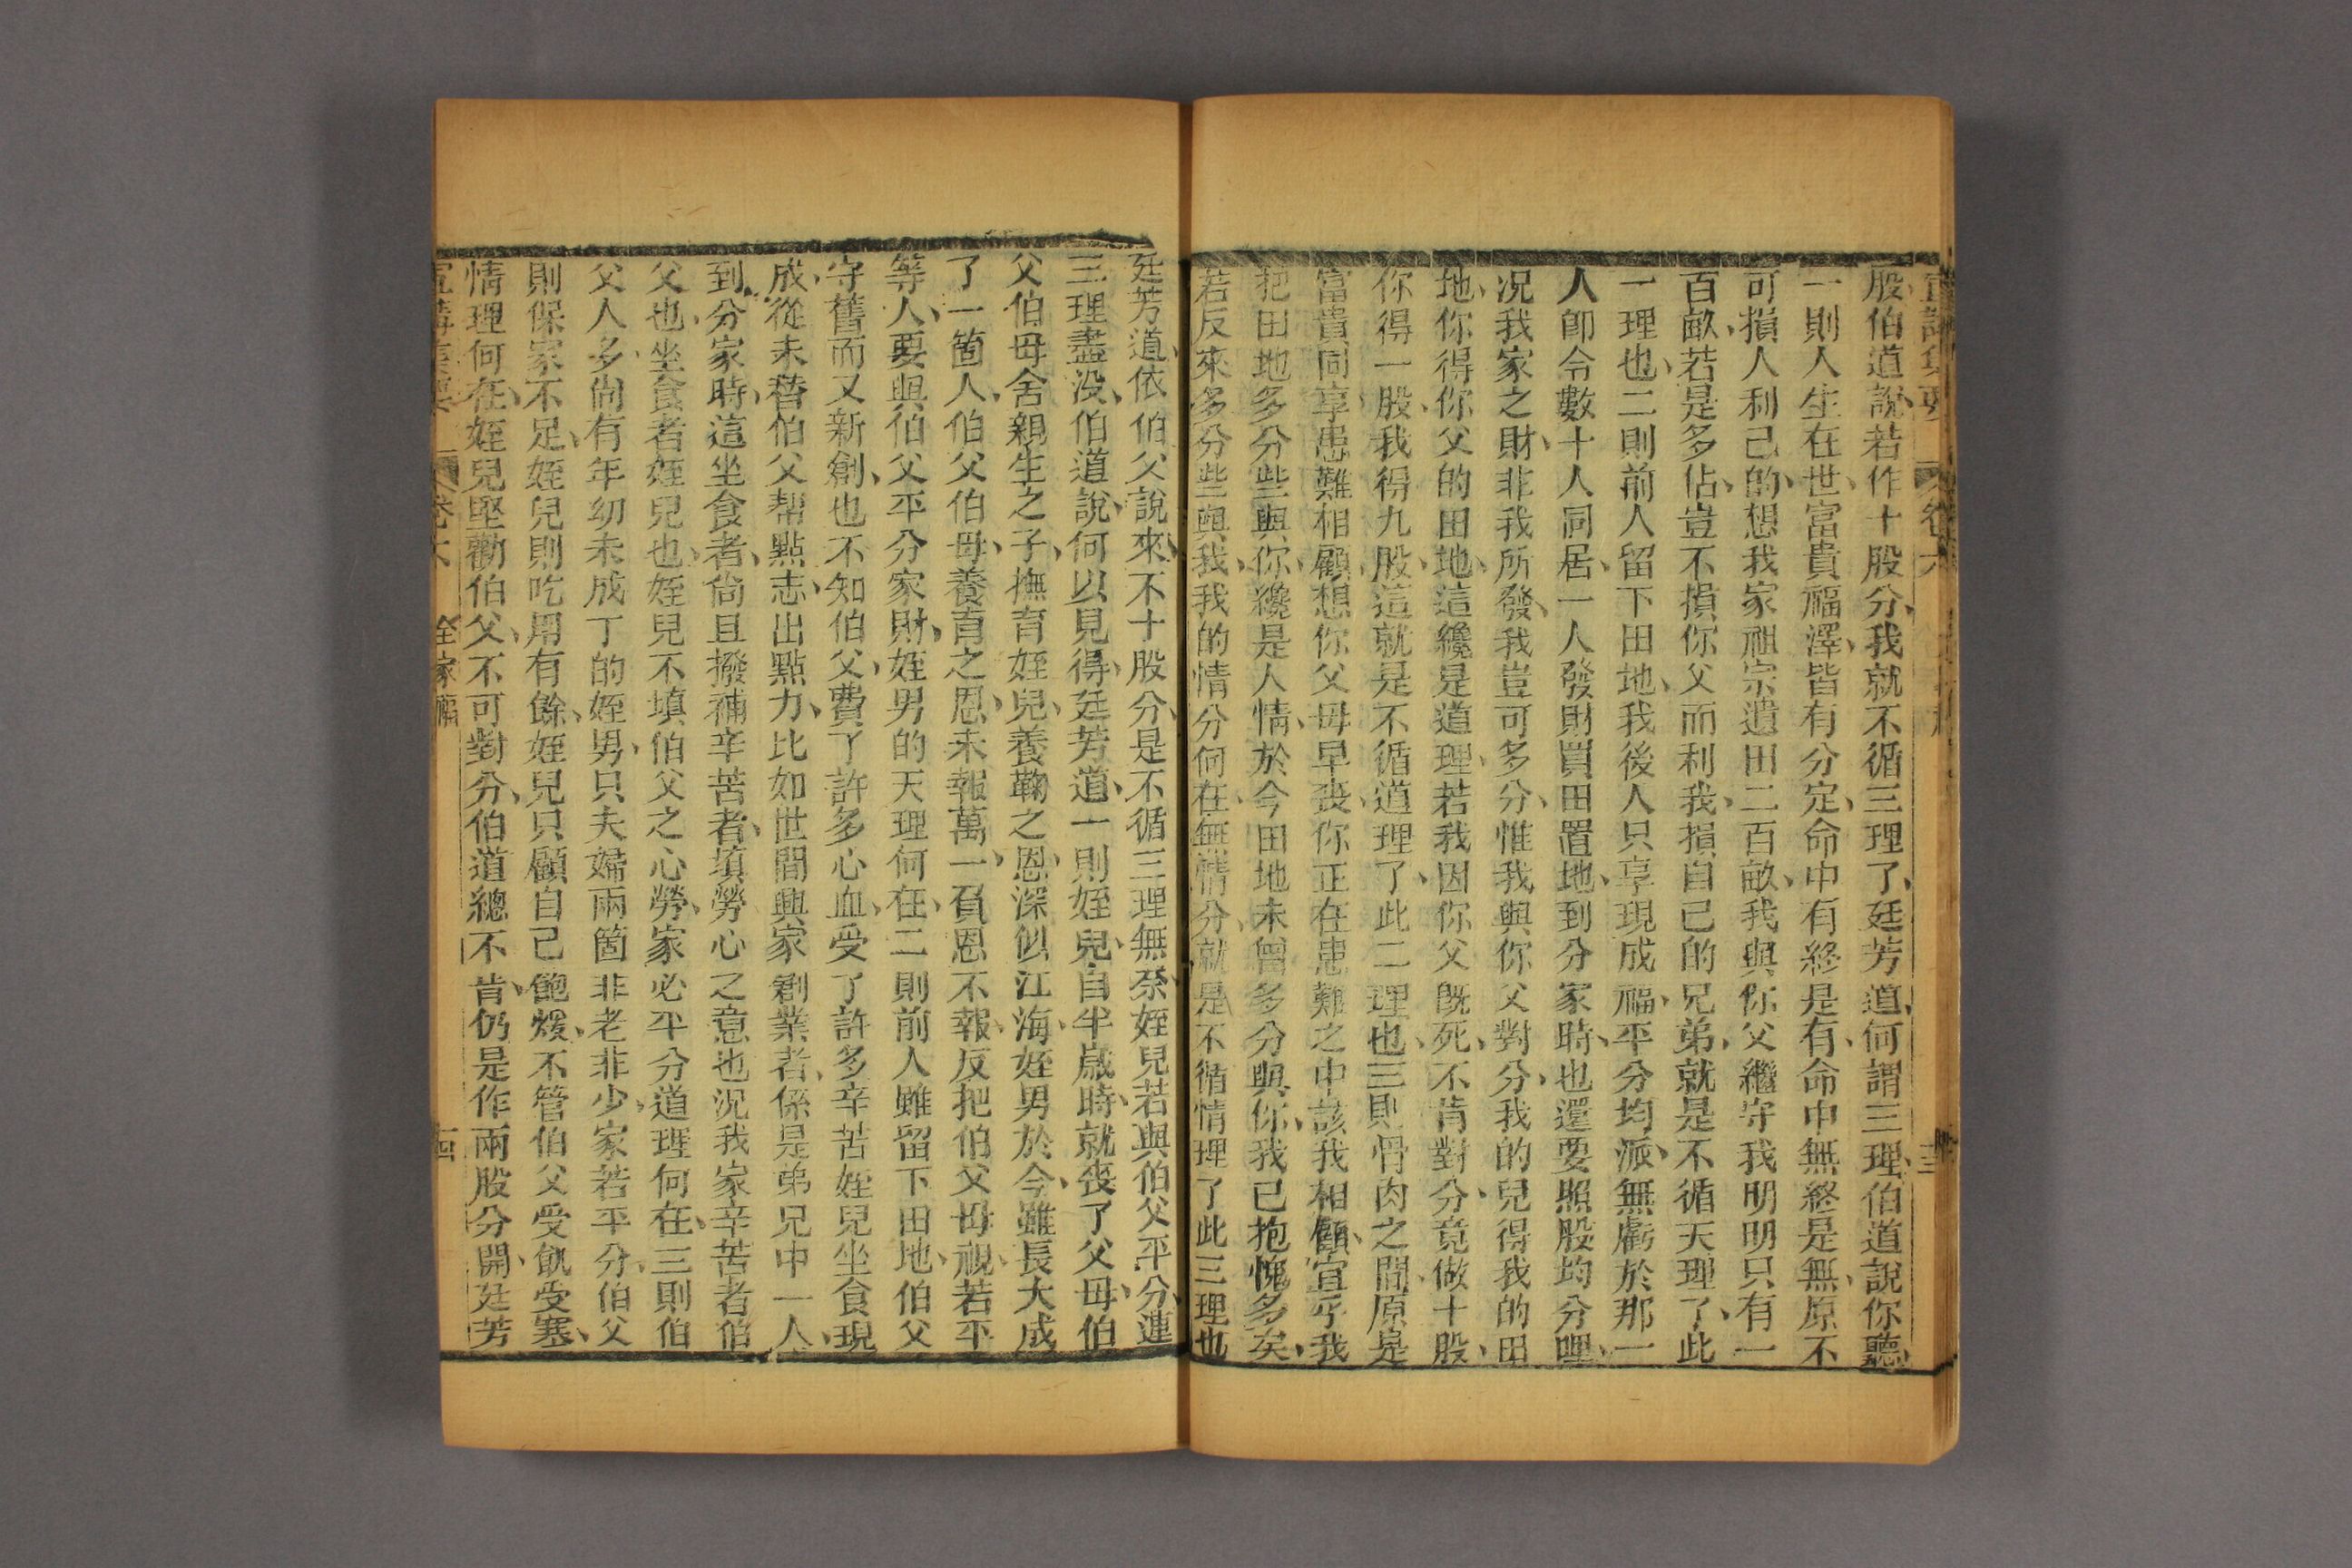 股伯道說若作十股分我就不循三理了廷芳道何謂三理伯道說你聽
一則人生在世富貴福澤皆有分定命中有終是有命中無終是無原不
可損人利己的想我家祖宗遺田二百畝我與你父繼守我明明只有一
百畝若是多佔豈不損你父而利我損自己的兄弟就是不循天理了此
一理也二則前人留下田地我後人只享現成福平分均派無虧於那一
人卽令數十人同居一人發財買田置地到分家時也還要照股均分哩
况我家之財非我所發我豈可多分惟我與你父對分我的兒得我的田
地你得你父的田地這纔是道理若我因你父旣死不肯對分竟做十股
你得一股我得九股這就是不循道理了此二理也三則骨肉之間原是
富貴同享患難相顧想你父母早喪你正在患難之中該我相顧宜乎我
把田地多分些與你纔是人情於今田地未曾多分與你我已抱愧多矣
若反來多分些與我我的情分何在無情分就是不循情理了此三理也
廷芳道依伯父說來不十股分是不循三理無奈姪兒若與伯父平分連
三理盡没伯道說何以見得廷芳道一則姪兒自半歲時就喪了父母伯
父伯母舍親生之子撫育姪兒養鞠之恩深似江海姪男於今雖長大成
了一箇人伯父伯母養育之恩未報萬一負恩不報反把伯父母視若平
等人要與伯父平分家財姪男的天理何在二則前人雖留下田地伯父
守舊而又新創也不知伯父費了許多心血受了許多辛苦姪兒坐食現
成從未替伯父帮點志出點力比如世間興家創業者係是弟兄中一人
到分家時這坐食者尙且撥補辛苦者填勞心之意也况我家辛苦者伯
父也坐食者姪兒也姪兒不填伯父之心勞家必平分道理何在三則伯
父人多尙有年幼未成丁的姪男只夫婦兩箇非老非少家若平分伯父
則保家不足姪兒則吃用有餘姪兒只顧自己飽煖不管伯父受飢受寒
情理何在姪兒堅勸伯父不可對分伯道總不肯仍是作兩股分開廷芳
卷六 全家福 十四